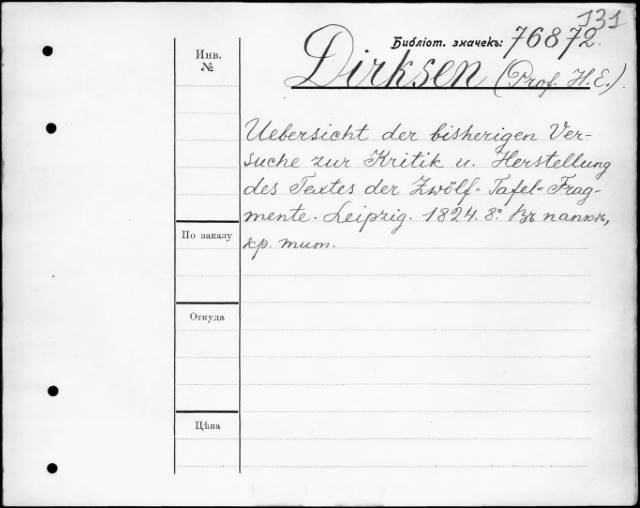 131
Библіот. значекъ: 76872.
Инв.
№
Dirksen (Prof. H. E.).
Uebersicht der bisherigen Ver-
suche zur Kritik u. Herstellung
des Textes der Zwölf-Tafel-Frag-
mente. Leipzig. 1824. 8º. Въ папкѣ,
По заказу
кр. тит.
Откуда
Цѣна